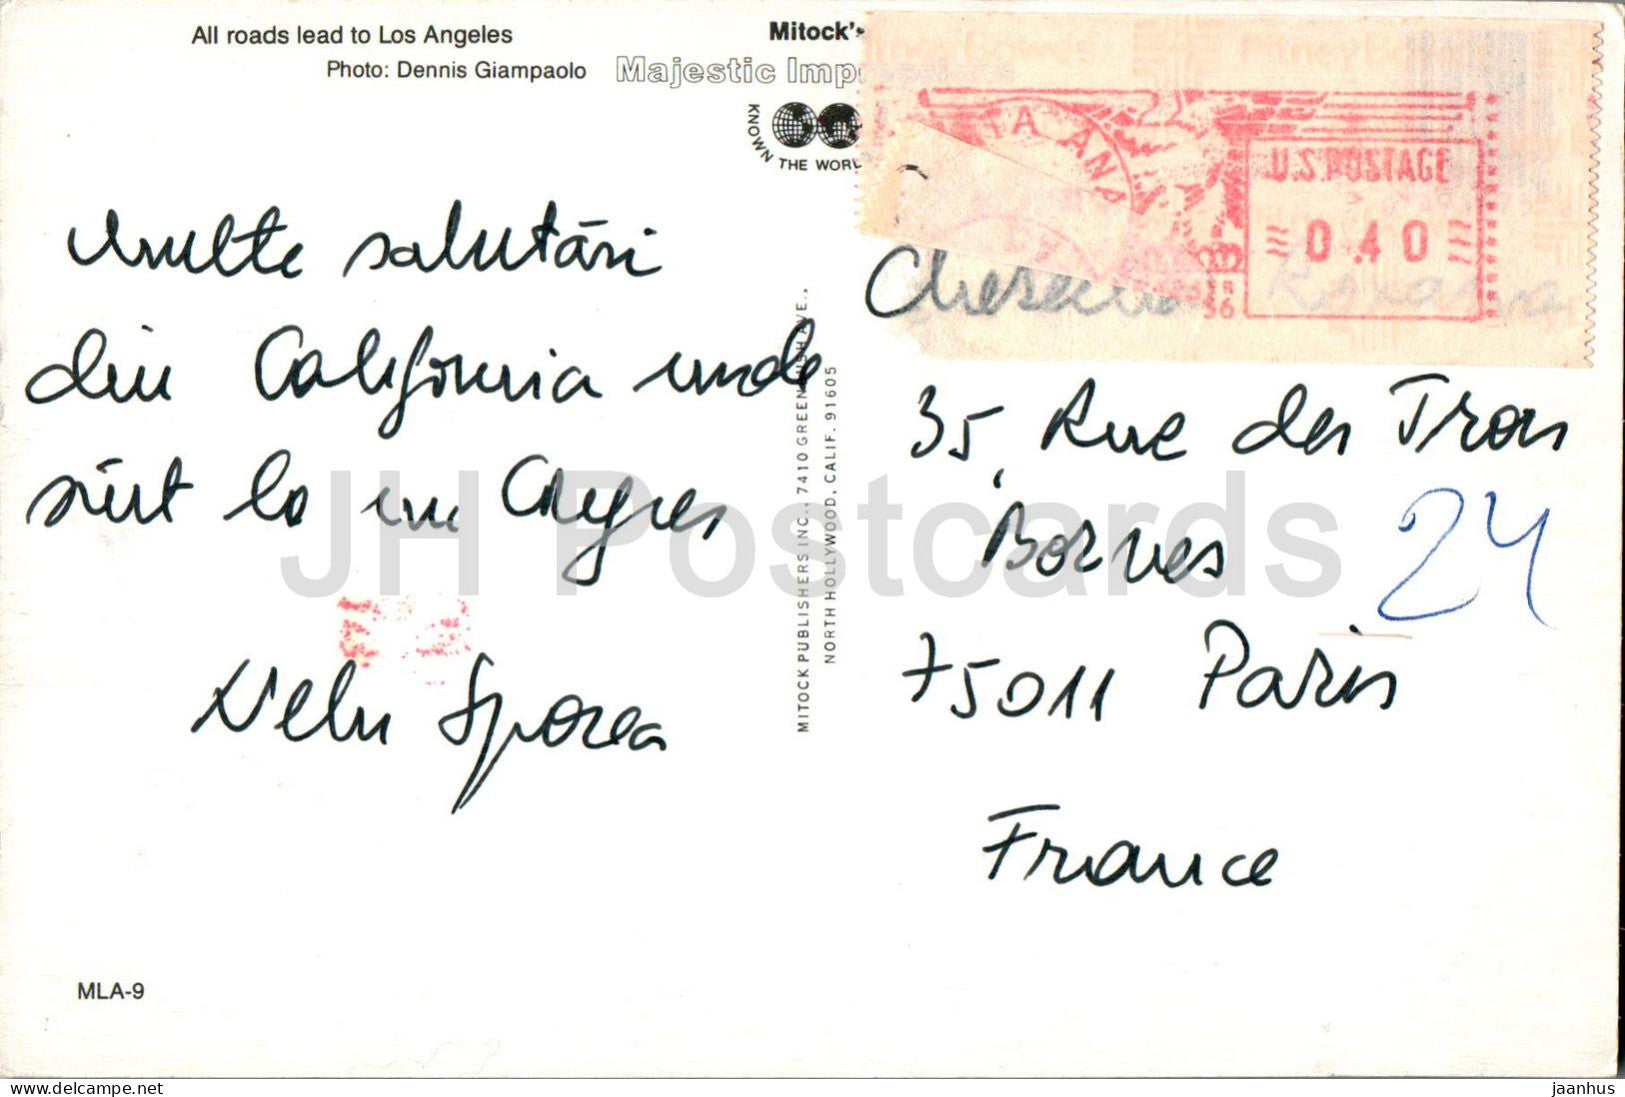 All roads lead to Los Angeles
Photo: Dennis Giampaolo
Mitock's
Majestic Imp
KNOWN THE WORL
U.S. POSTAGE
0.40
TA ANA
Multe salutări
din California unde
sînt la un Congres
Nelu Sporea
35, Rue des Trois
Bornes
75011 Paris
France
24
MITOCK PUBLISHERS INC., 7410 GREENBUSH AVE.,
NORTH HOLLYWOOD, CALIF. 91605
MLA-9
JH Postcards
www.delcampe.net
jaanhus